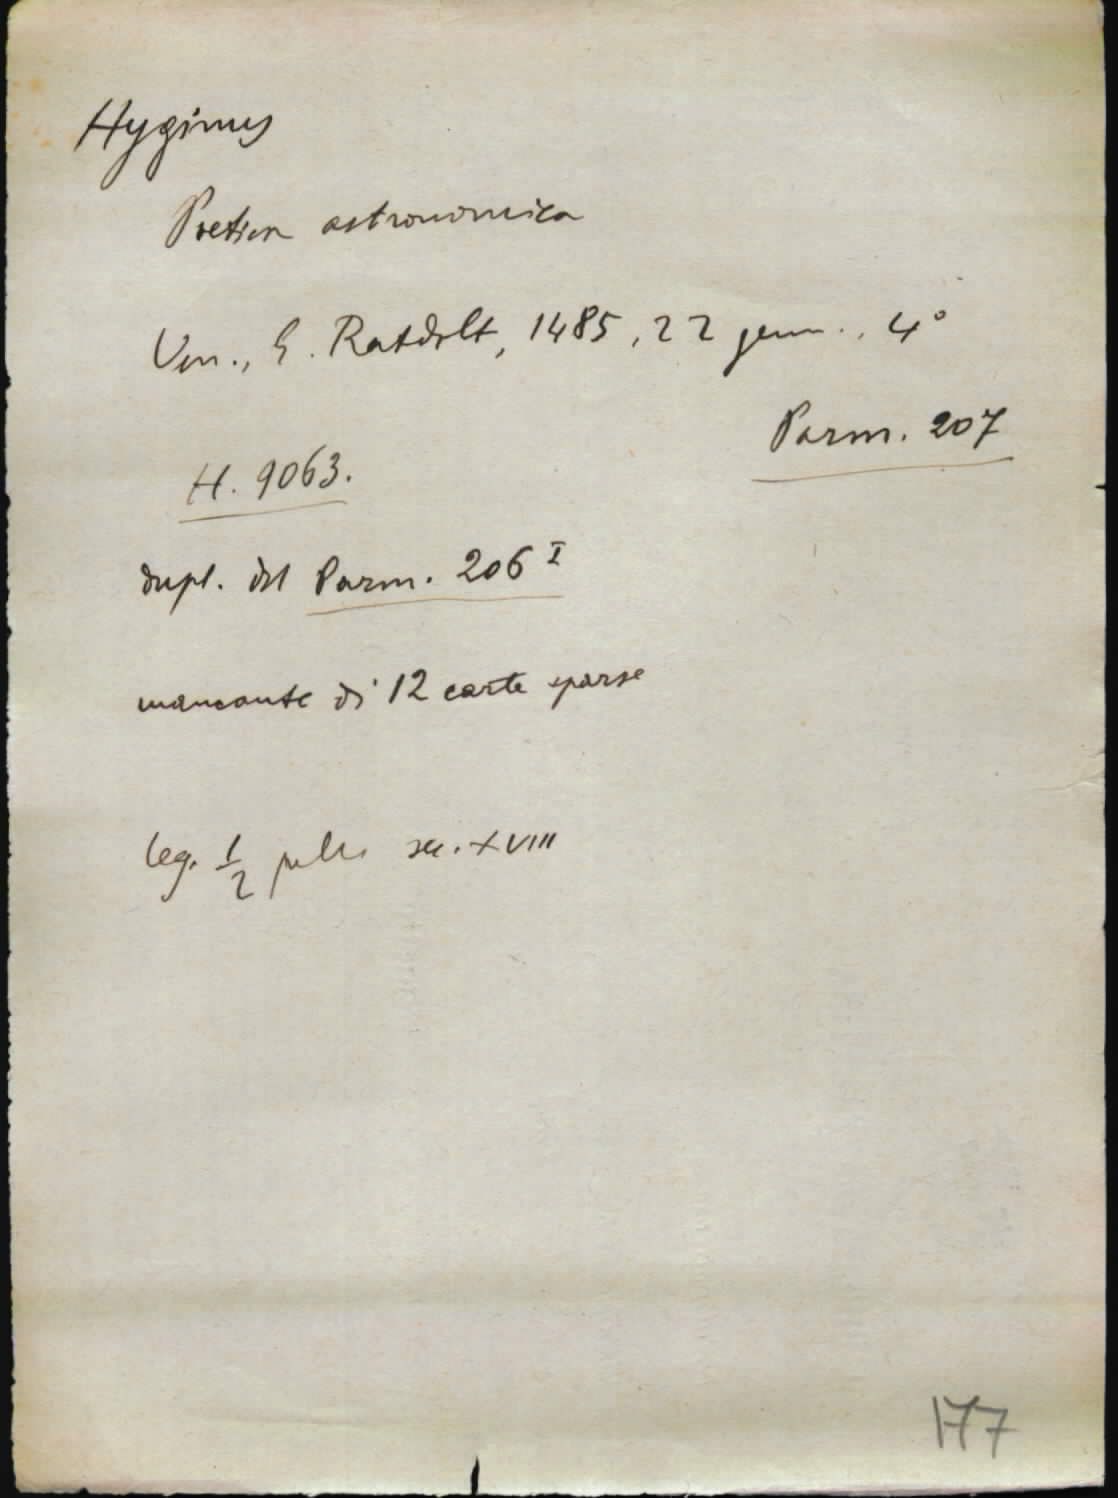 Hyginus
Poetica astronomica
Ven., E. Ratdolt, 1485, 22 genn., 4°
Parm. 207
H. 9063.
dupl. del Parm. 206 I
mancante di 12 carte sparse
leg. 1/2 pelle sec. XVIII
177